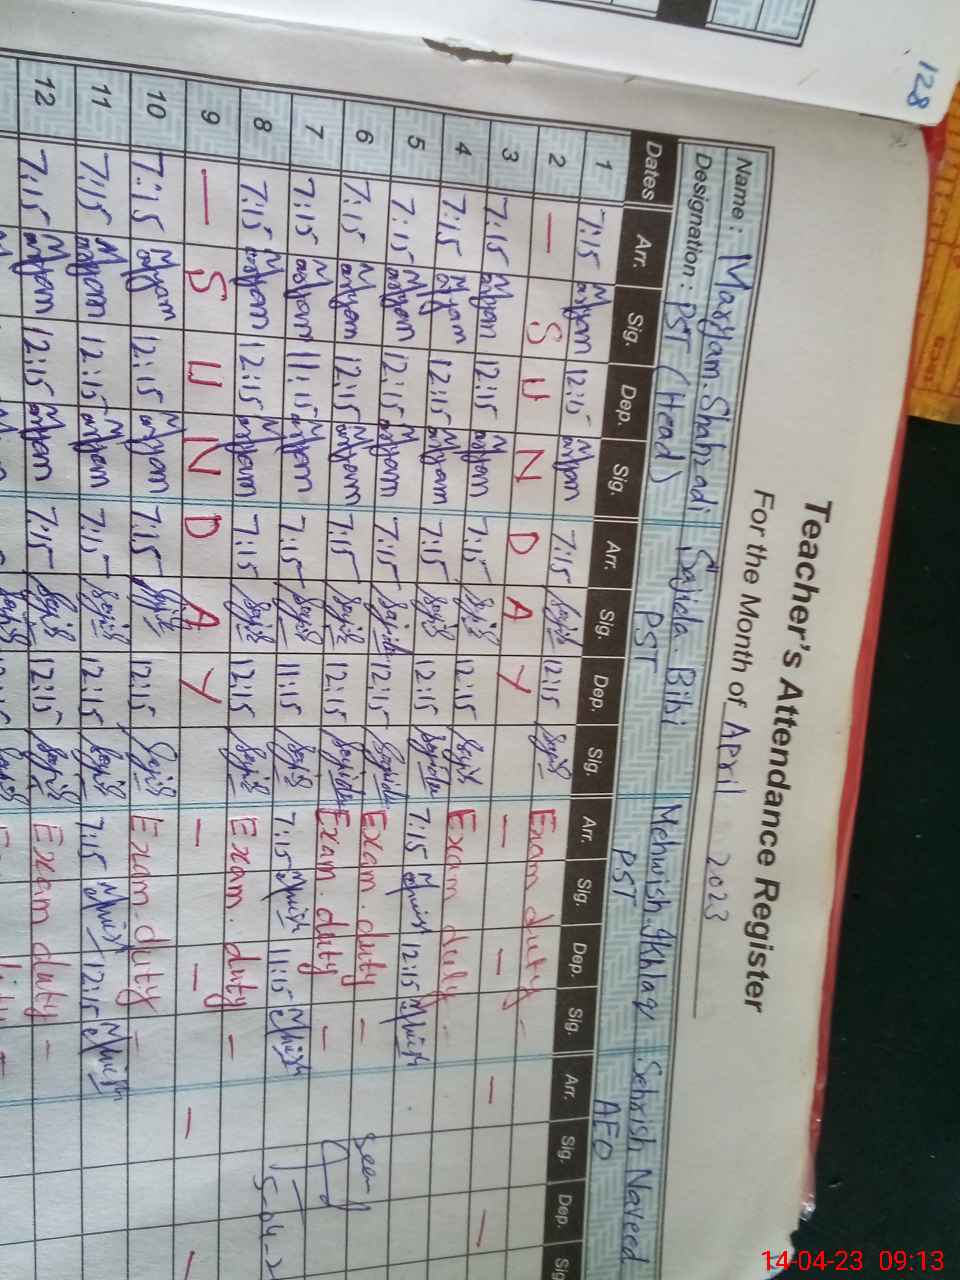 128
Teacher's Attendance Register
For the Month of April 2023
Name: Maryam Shahzadi Sajida Bibi Mehwish Ikhlaq Sehrish Naveed
Designation: PST (Head) PST PST AEO
Dates Arr. Sig. Dep. Sig. Arr. Sig. Dep. Sig. Arr. Sig. Dep. Sig. Arr. Sig. Dep. Sig
1 7:15 Maryam 12:15 Maryam 7:15 Sajid 12:15 Sajid Exam duty -
2 — S U N D A Y — — — —
3 7:15 Maryam 12:15 Maryam 7:15 Sajid 12:15 Sajid Exam duty -
4 7:15 Maryam 12:15 Maryam 7:15 Sajid 12:15 Sajida 7:15 Mehwish 12:15 Mehwish
5 7:15 Maryam 12:15 Maryam 7:15 Sajida 12:15 Sajida Exam duty - Seen
6 7:15 Maryam 12:15 Maryam 7:15 Sajid 12:15 Sajida Exam duty -
7 7:15 Maryam 11:15 Maryam 7:15 Sajid 11:15 Sajid 7:15 Mehwish 11:15 Mehwish 5-04-2
8 7:15 Maryam 12:15 Maryam 7:15 Sajid 12:15 Sajid Exam duty -
9 — S U N D A Y — — — —
10 7:15 Maryam 12:15 Maryam 7:15 Sajid 12:15 Sajid Exam duty -
11 7:15 Maryam 12:15 Maryam 7:15 Sajid 12:15 Sajid 7:15 Mehwish 12:15 Mehwish
12 7:15 Maryam 12:15 Maryam 7:15 Sajid 12:15 Sajid Exam duty -
14-04-23 09:13